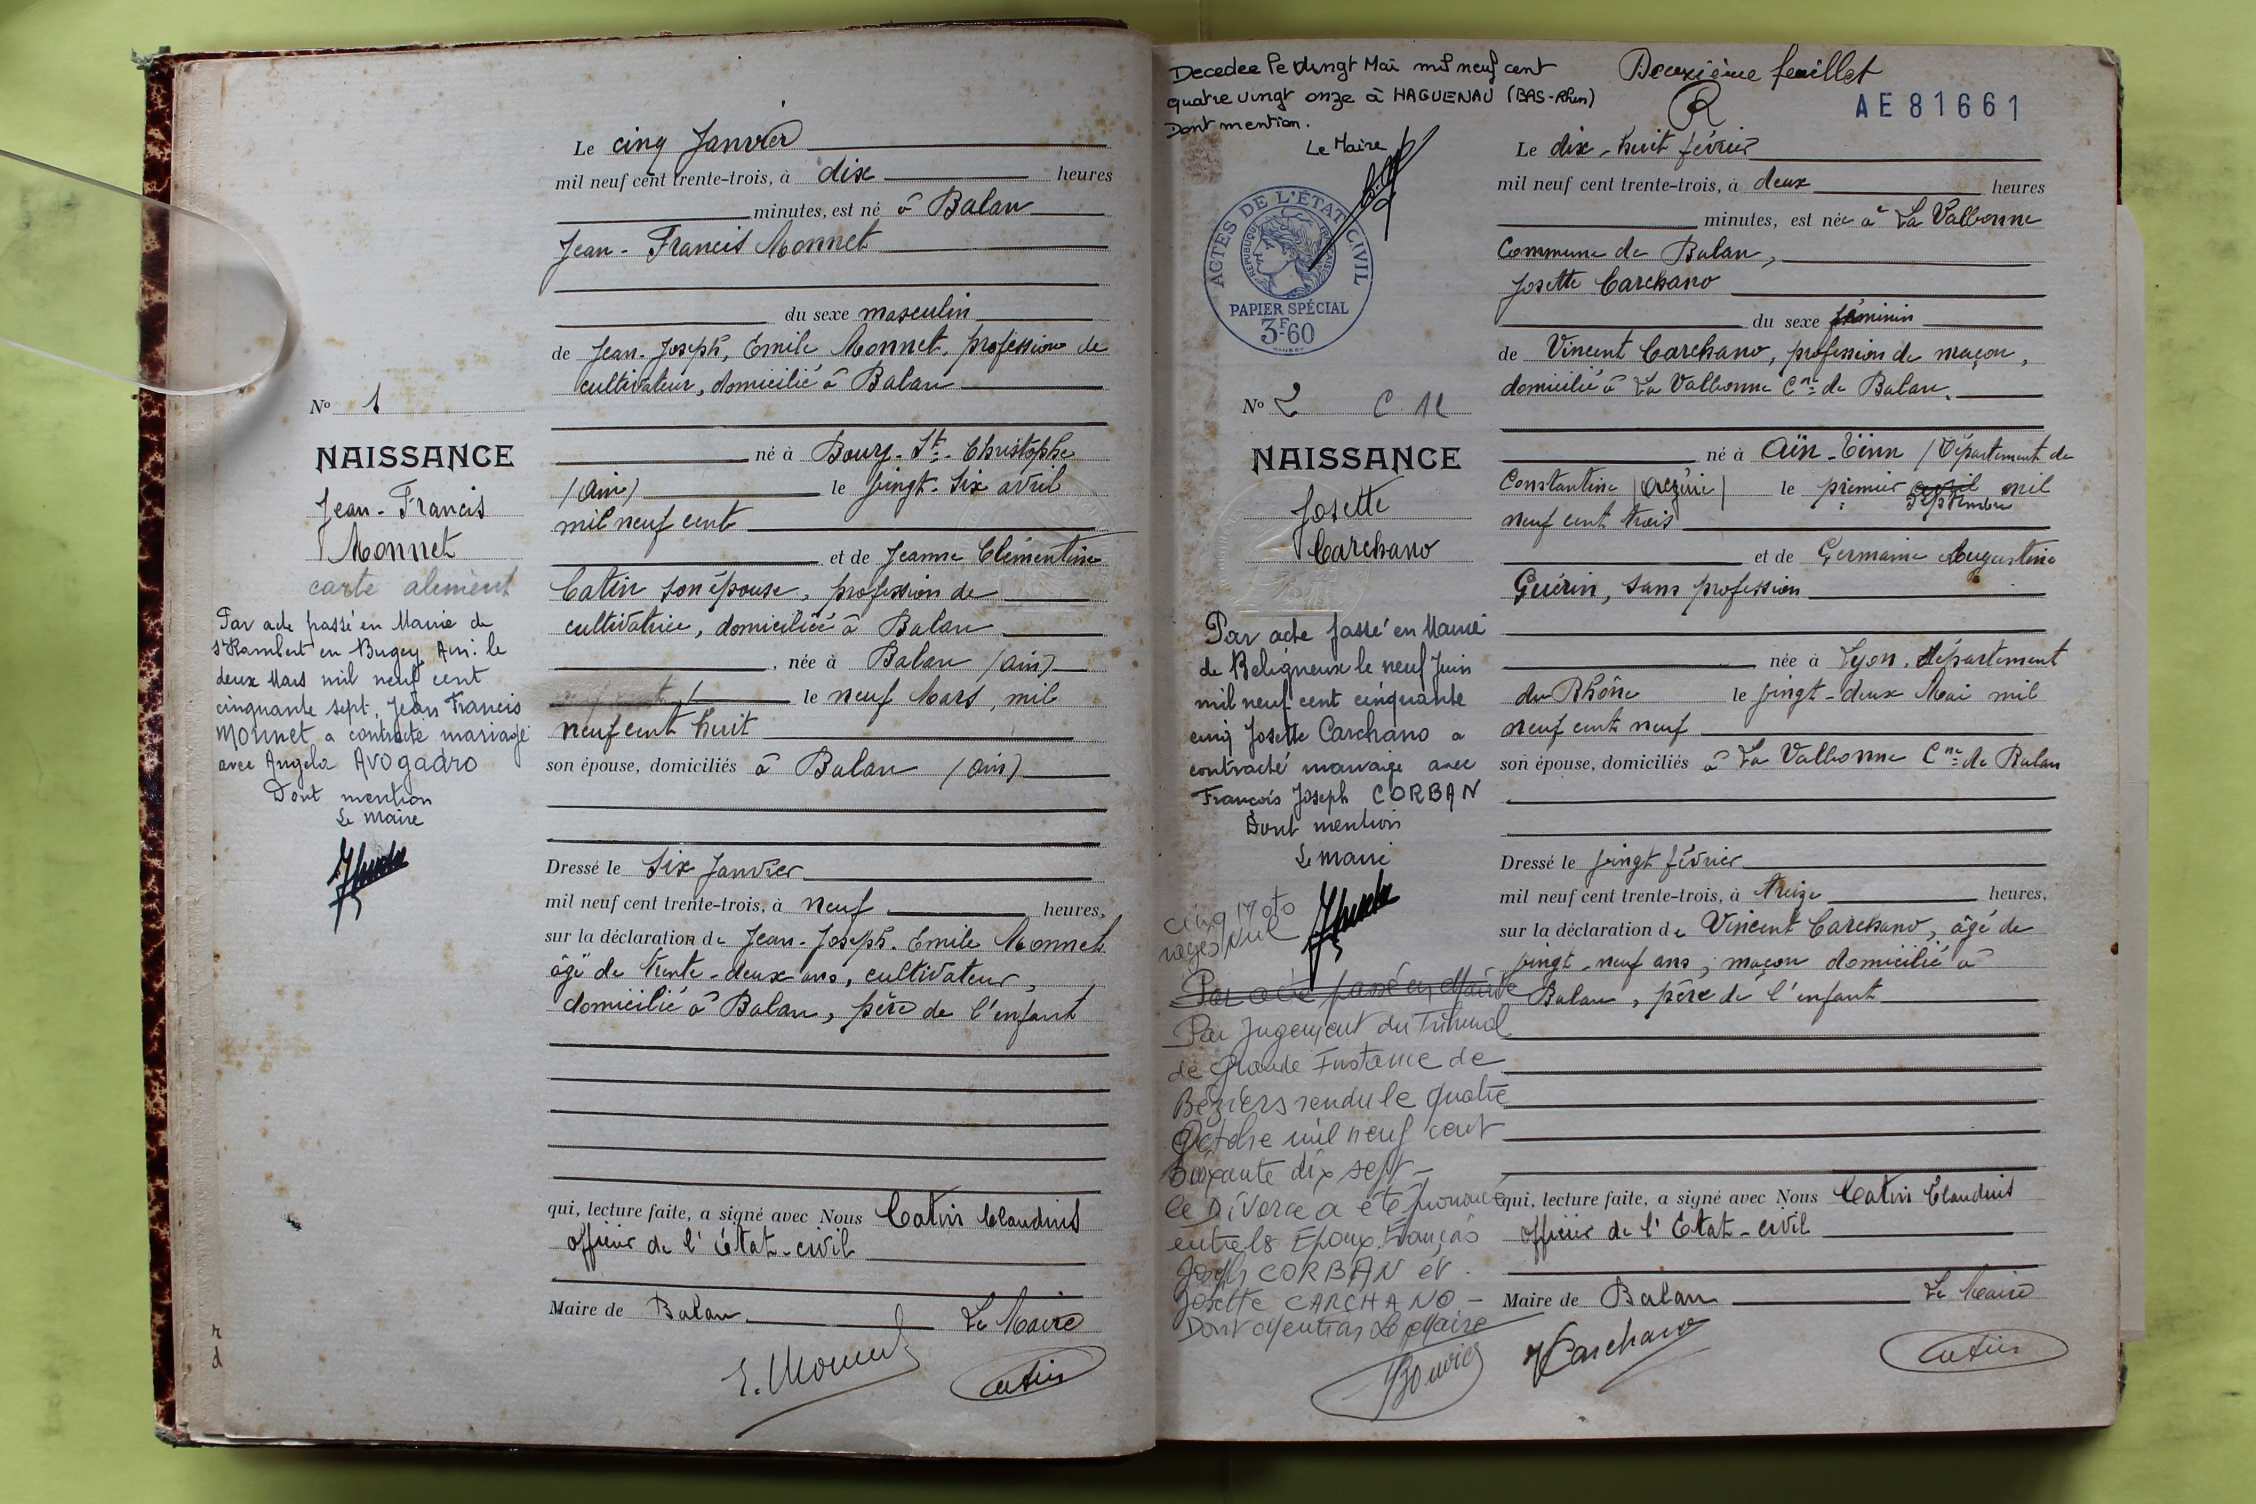 Le cinq Janvier
mil neuf cent trente-trois, à dix heures
minutes, est né à Balan
Jean-Francis Monnet
du sexe masculin
de Jean-Joseph, Emile Monnet, profession de
cultivateur, domicilié à Balan
né à Bourg-St-Christophe
(Ain) le vingt-six avril
mil neuf cent
et de Jeanne Clémentine
Catin son épouse, profession de
cultivatrice, domiciliée à Balan
née à Balan (Ain)
le neuf Mars, mil
neuf cent huit
son épouse, domiciliés à Balan (Ain)
Dressé le six Janvier
mil neuf cent trente-trois, à neuf heures,
sur la déclaration de Jean-Joseph-Emile Monnet
âgé de trente-deux ans, cultivateur,
domicilié à Balan, père de l'enfant
qui, lecture faite, a signé avec Nous Catin Claudius
officier de l'état-civil
Maire de Balan Le Maire
E. Monnet Catin
No 1
NAISSANCE
Jean-Francis
Monnet
carte aliment
Par acte passé en Mairie de
St Rambert en Bugey Ain. le
deux Mars mil neuf cent
cinquante sept, Jean Francis
MONNET a contracté mariage
avec Angela AVOGADRO
Dont mention
Le Maire
r
d
Decedee le vingt Mai mil neuf cent
quatre vingt onze à HAGUENAU (BAS-Rhin)
Dont mention.
Le Maire
Deuxième feuillet
R
AE 81661
ACTES DE L'ÉTAT CIVIL
RÉPUBLIQUE FRANÇAISE
PAPIER SPÉCIAL
3F-60
No 2
NAISSANCE
Josette
Carchano
Par acte passé en Mairie
de Beligneux le neuf Juin
mil neuf cent cinquante
cinq Josette Carchano a
contracté mariage avec
François Joseph CORBAN
Dont mention
Le Maire
cinq Mots
rayés Nul
Par acte passé en Mairie
Par Jugement du Tribunal
de Grande Instance de
Béziers rendu le quatre
Octobre mil neuf cent
soixante dix sept -
le Divorce a été prononcé
entre les Epoux François
Joseph CORBAN et
Josette CARCHANO -
Dont Mention Le Maire
Bouvier
Le dix-huit février
mil neuf cent trente-trois, à deux heures
minutes, est née à La Valbonne
Commune de Balan,
Josette Carchano
du sexe féminin
de Vincent Carchano, profession de maçon,
domicilié à La Valbonne Cne de Balan.
né à Aïn-Tinn (Département de
Constantine (Algérie) le premier avril mil
septembre
neuf cent trois
et de Germaine Augustine
Guérin, sans profession
née à Lyon, département
du Rhône le vingt-deux Mai mil
neuf cent neuf
son épouse, domiciliés à La Valbonne Cne de Balan
Dressé le vingt février
mil neuf cent trente-trois, à treize heures,
sur la déclaration de Vincent Carchano, âgé de
vingt-neuf ans, maçon domicilié à
Balan, père de l'enfant
qui, lecture faite, a signé avec Nous Catin Claudius
officier de l'Etat-civil
Maire de Balan Le Maire
V Carchano Catin